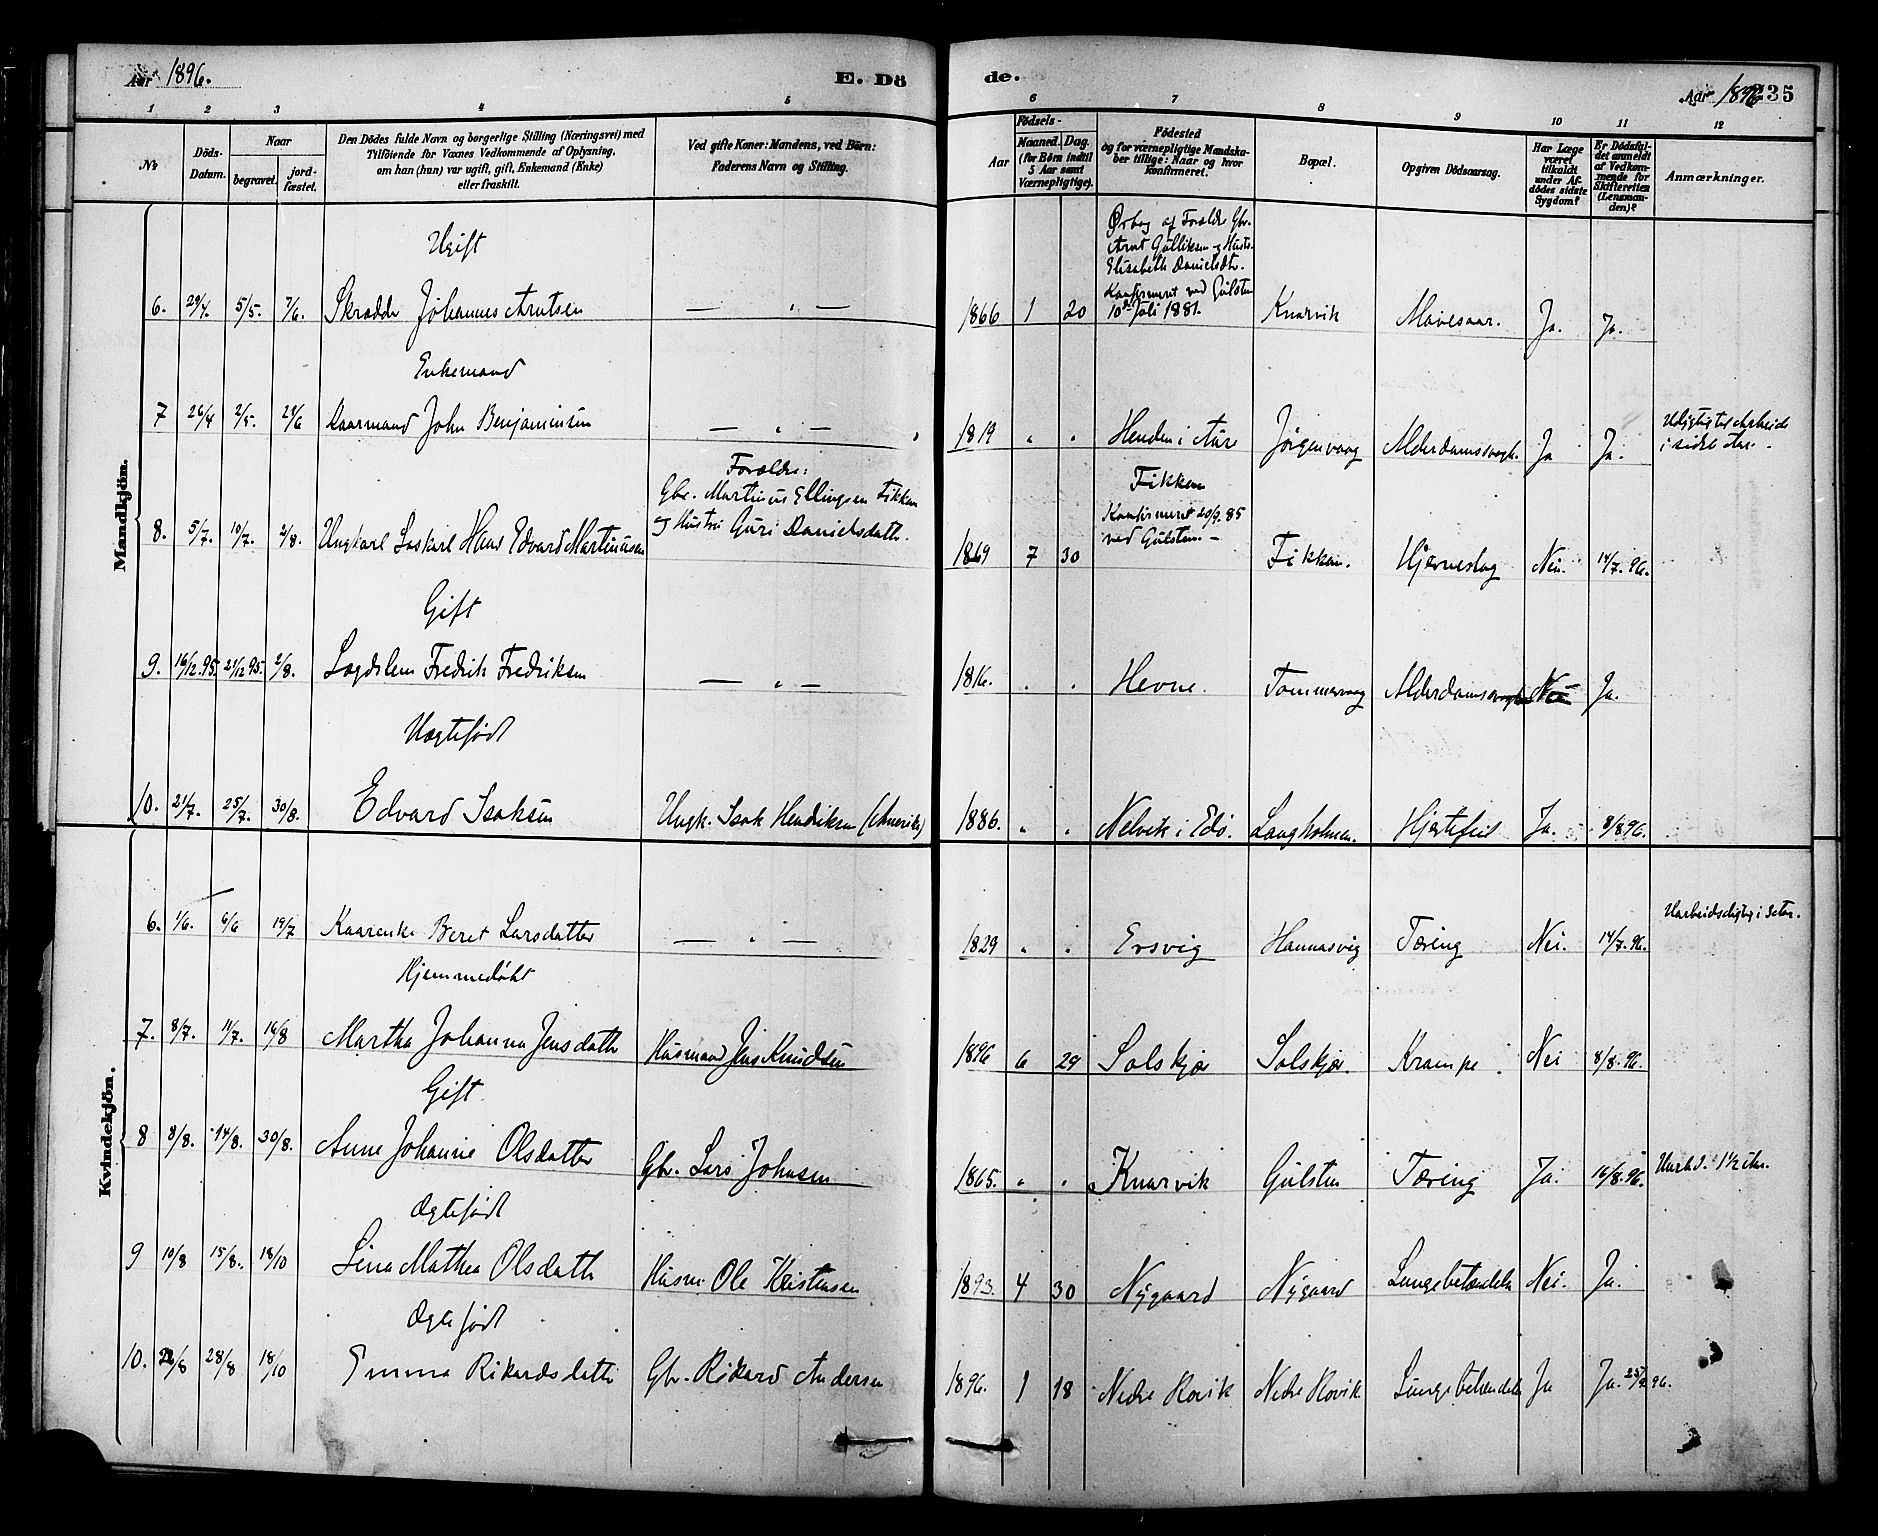 Aar 1896. E. Dö
1 2 3 4 5
No Döds-Datum. Naar begravet. jord-fæstet. Den Dödes fulde Navn og borgerlige Stilling (Næringsvei) med Tilföiende for Voxnes Vedkommende af Oplysning, om han (hun) var ugift, gift, Enkemand (Enke) eller fraskilt. Ved gifte Koner: Mandens, ved Börn: Faderens Navn og Stilling.
Mandkjön.
Ugift
6. 29/4. 5/5. 7/6. Skrædder Johannes Arntsen — " —
Enkemand
7 26/4 2/5. 29/6 Kaarmand John Benjaminsen — " —
Forældre:
Gbr. Martinus Ellingsen Fikkan
og Hustru Guri Danielsdatter.
8. 5/7. 10/7. 2/8. Ungkarl Loskarl Hans Edvard Martinussen
Gift
9. 16/12.95. 21/12 95. 2/8. Lægdslem Fredrik Fredriksen — " —
Uægtefødt
10. 21/7. 25/7. 30/8. Edvard Isaksen Ungk. Isak Hendriksen (Amerika)
Kvindekjön.
6. 1/6. 6/6 19/7 Kaarenke Beret Larsdatter — " —
Hjemmedøbt
7. 8/7. 11/7. 16/8 Martha Johanna Jensdatter Husmand Jens Knudsen
Gift
8 8/8. 14/8. 30/8. Anne Johanne Olsdatter Gbr. Lars Johnsen
Ægtefødt
9 10/8 15/8. 18/10 Lina Mathea Olsdatter Husm. Ole Kristensen
Ægtefødt
10. 22/8 28/8 18/10 Emma Rikardsdatter Gbr. Rikard Andersen
de. Aar 1896 235
6 7 8 9 10 11 12
Födsels- Aar Maaned. Dag. (for Börn indtil 5 Aar samt Værnepligtige). Födested og for værnepligtige Mandskaber tillige: Naar og hvor konfirmeret. Bopæl. Opgiven Dödsaarsag. Har Læge været tilkaldt under Afdödes sidste Sygdom? Er Dödsfaldet anmeldt af Vedkommende for Skifteretten (Lensmanden)? Anmærkninger.
Ørbog af Forældre Gbr.
Arnt Gulliksen og Hustr.
Elisabeth Danielsdtr.
Konfirmeret ved Gulsten
10de Juli 1881.
1866 1 20 Knarvik Mavesaar. Ja. Ja.
1819 " " Henden i Aure Jörgenvaag Alderdomssvagh. Ja Ja. Udygtig til Arbeide
i sidste Aar.
Fikkan
Konfirmeret 20/9. 85
ved Gulsten. -
1869 7 30 Fikkan. Hjerneslag Nei. 14/7. 96.
1816. " " Hevne. Tømmervaag Alderdomssvagh. Nei Ja.
1886. " " Nelvik i Edø. Langholmen. Hjertefeil Ja. 8/8 96.
1829 " " Ersvig Hannasvig Tæring Nei. 14/7. 96. Uarbeidsdygtig i 3 Aar.
1896 6 29 Solskjør Solskjør. Krampe Nei 8/8. 96.
1865. " " Knarvik Gulsten Tæring Ja. 16/8. 96. Uarbd. 1 1/2 Aar.
1893. 4 30 Nygaard Nygaard Lungebetændelse Nei. Ja.
1896. 1 18 Nedre Rovik Nedre Rovik Lungebetændelse Ja Ja. 25/9 96.